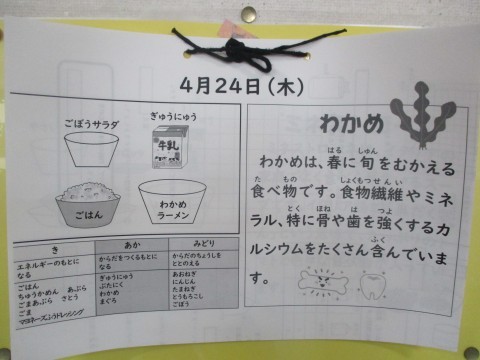 4月24日(木)
ごぼうサラダ
ぎゅうにゅう
牛乳
ごはん
わかめ
ラーメン
き
あか
みどり
エネルギーのもとに
なる
からだをつくるもとに
なる
からだのちょうしを
ととのえる
ごはん
ちゅうかめん あぶら
ごまあぶら さとう
ごま
マヨネーズふうドレッシング
ぎゅうにゅう
ぶたにく
わかめ
まぐろ
あおねぎ
にんじん
たまねぎ
とうもろこし
ごぼう
わかめ
はる しゅん
わかめは、春に旬をむかえる
た もの しょくもつせんい
食べ物です。食物繊維やミネ
とく ほね は つよ
ラル、特に骨や歯を強くするカ
ふく
ルシウムをたくさん含んでいま
す。